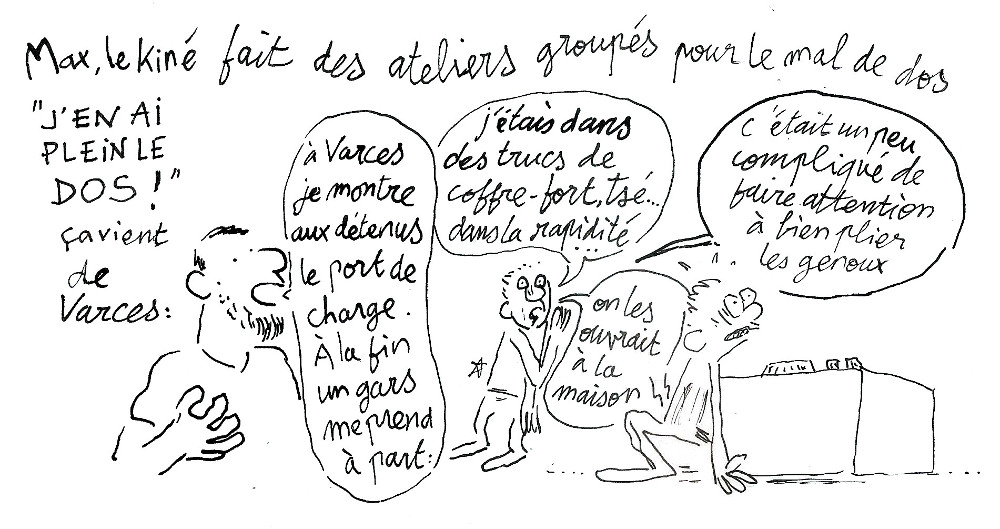 Max, le kiné fait des ateliers groupés pour le mal de dos
"J'EN AI
PLEIN LE
DOS !"
ça vient
de
Varces :
à Varces
je montre
aux détenus
le port de
charge.
À la fin
un gars
me prend
à part :
j'étais dans
des trucs de
coffre-fort, tsé...
dans la rapidité
on les
ouvrait
à la
maison
c'était un peu
compliqué de
faire attention
à bien plier
les genoux